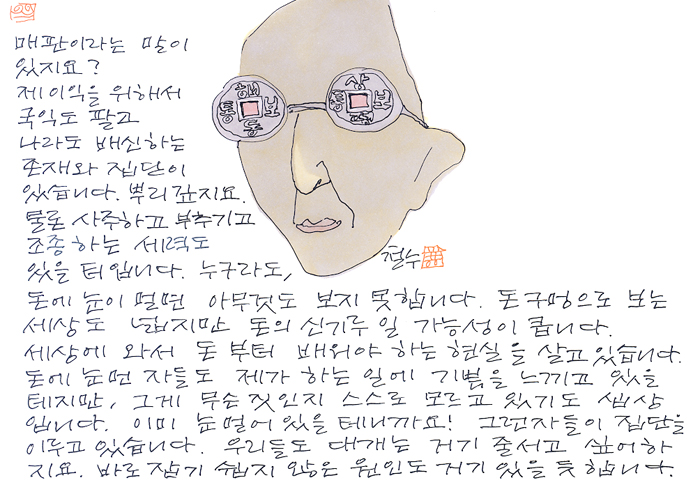 매판이라는 말이
있지요?
제 이익을 위해서
국익도 팔고
나라도 배신하는
존재와 집단이
있습니다. 뿌리 깊지요.
물론 사주하고 부추기고
조종하는 세력도
있을 터입니다. 누구라도,
철수
돈에 눈이 멀면 아무것도 보지 못합니다. 돈구멍으로 보는
세상도 넓지만 돈의 신기루 일 가능성이 큽니다.
세상에 와서 돈 부터 배워야 하는 현실을 살고있습니다.
돈에 눈먼 자들도 제가 하는 일에 기쁨을 느끼고 있을
테지만, 그게 무슨 짓인지 스스로 모르고 있기도 쉽상
입니다. 이미 눈 멀어 있을 테니까요! 그런자들이 집단을
이루고 있습니다. 우리들도 대개는 거기 줄서고 싶어하
지요. 바로잡기 쉽지 않은 원인도 거기 있을 듯 합니다.